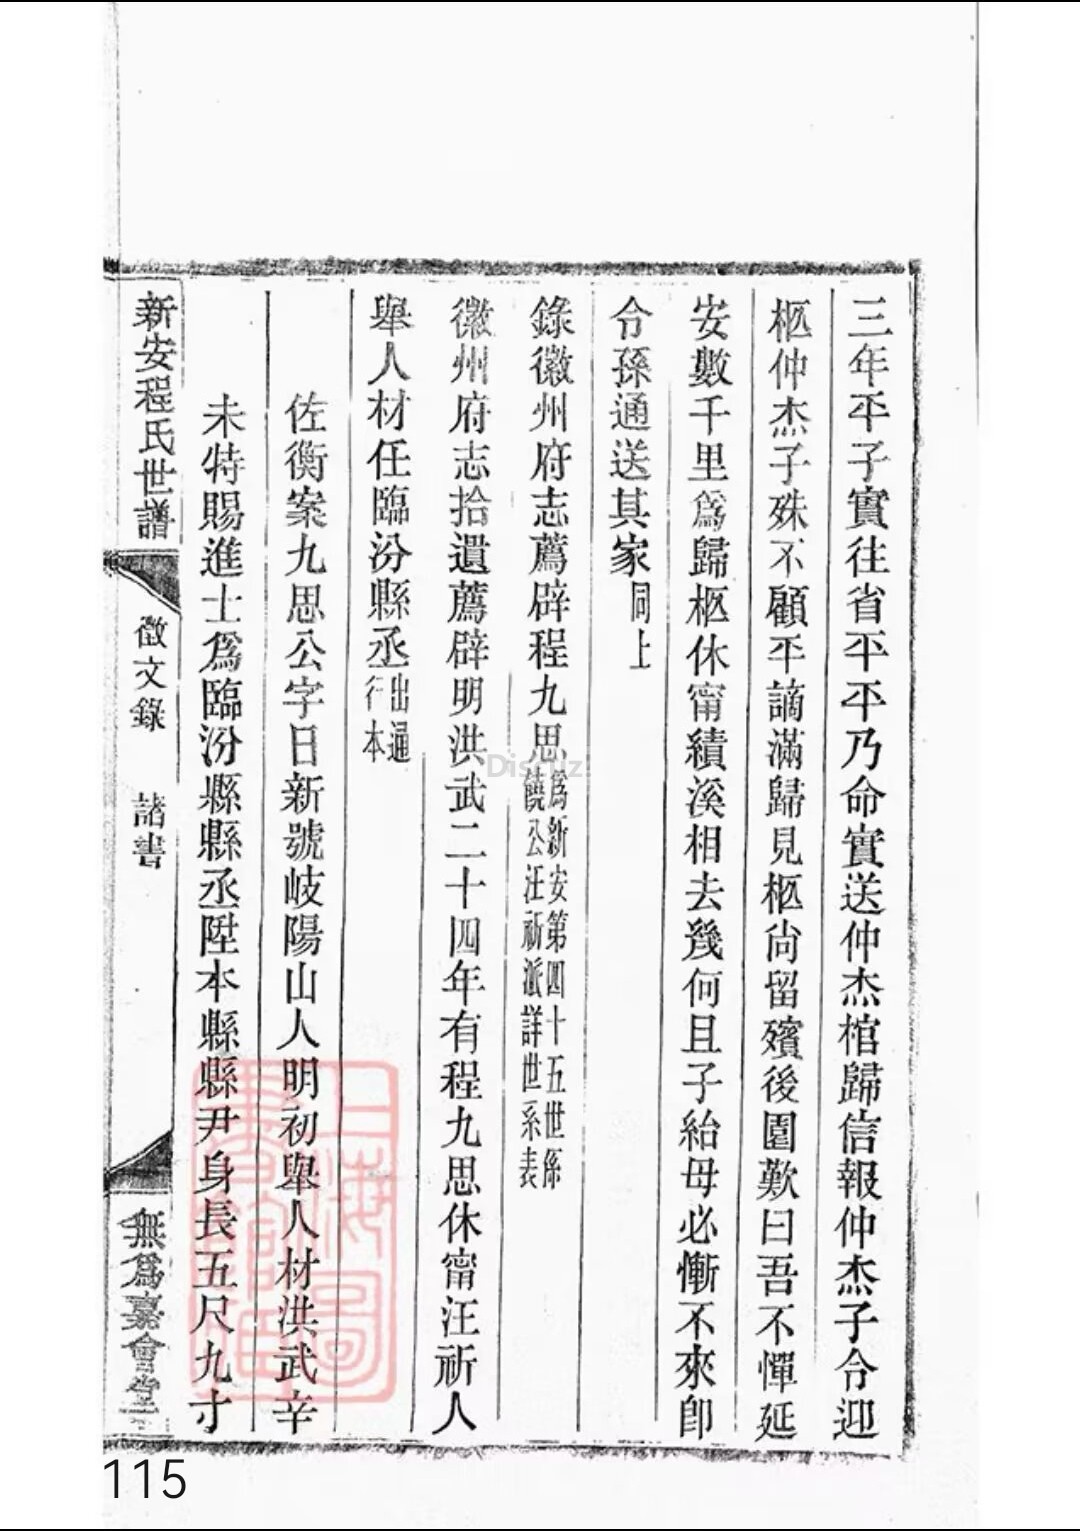 三年平子實往省平平乃命實送仲杰棺歸信報仲杰子令迎
柩仲杰子殊不顧平謫滿歸見柩尚留殯後園歎曰吾不憚延
安數千里爲歸柩休甯績溪相去幾何且子紿母必慚不來卽
令孫通送其家同上
錄徽州府志薦辟程九思爲新安第四十五世係
饒公汪祈派詳世系表
徽州府志拾遺薦辟明洪武二十四年有程九思休甯汪祈人
舉人材任臨汾縣丞出通
行本
佐衡案九思公字日新號岐陽山人明初舉人材洪武辛
未特賜進士爲臨汾縣縣丞陞本縣縣尹身長五尺九寸
新安程氏世譜
徵文錄
諸書
無爲嘉會堂
上海圖
書館藏
Discuz!
115